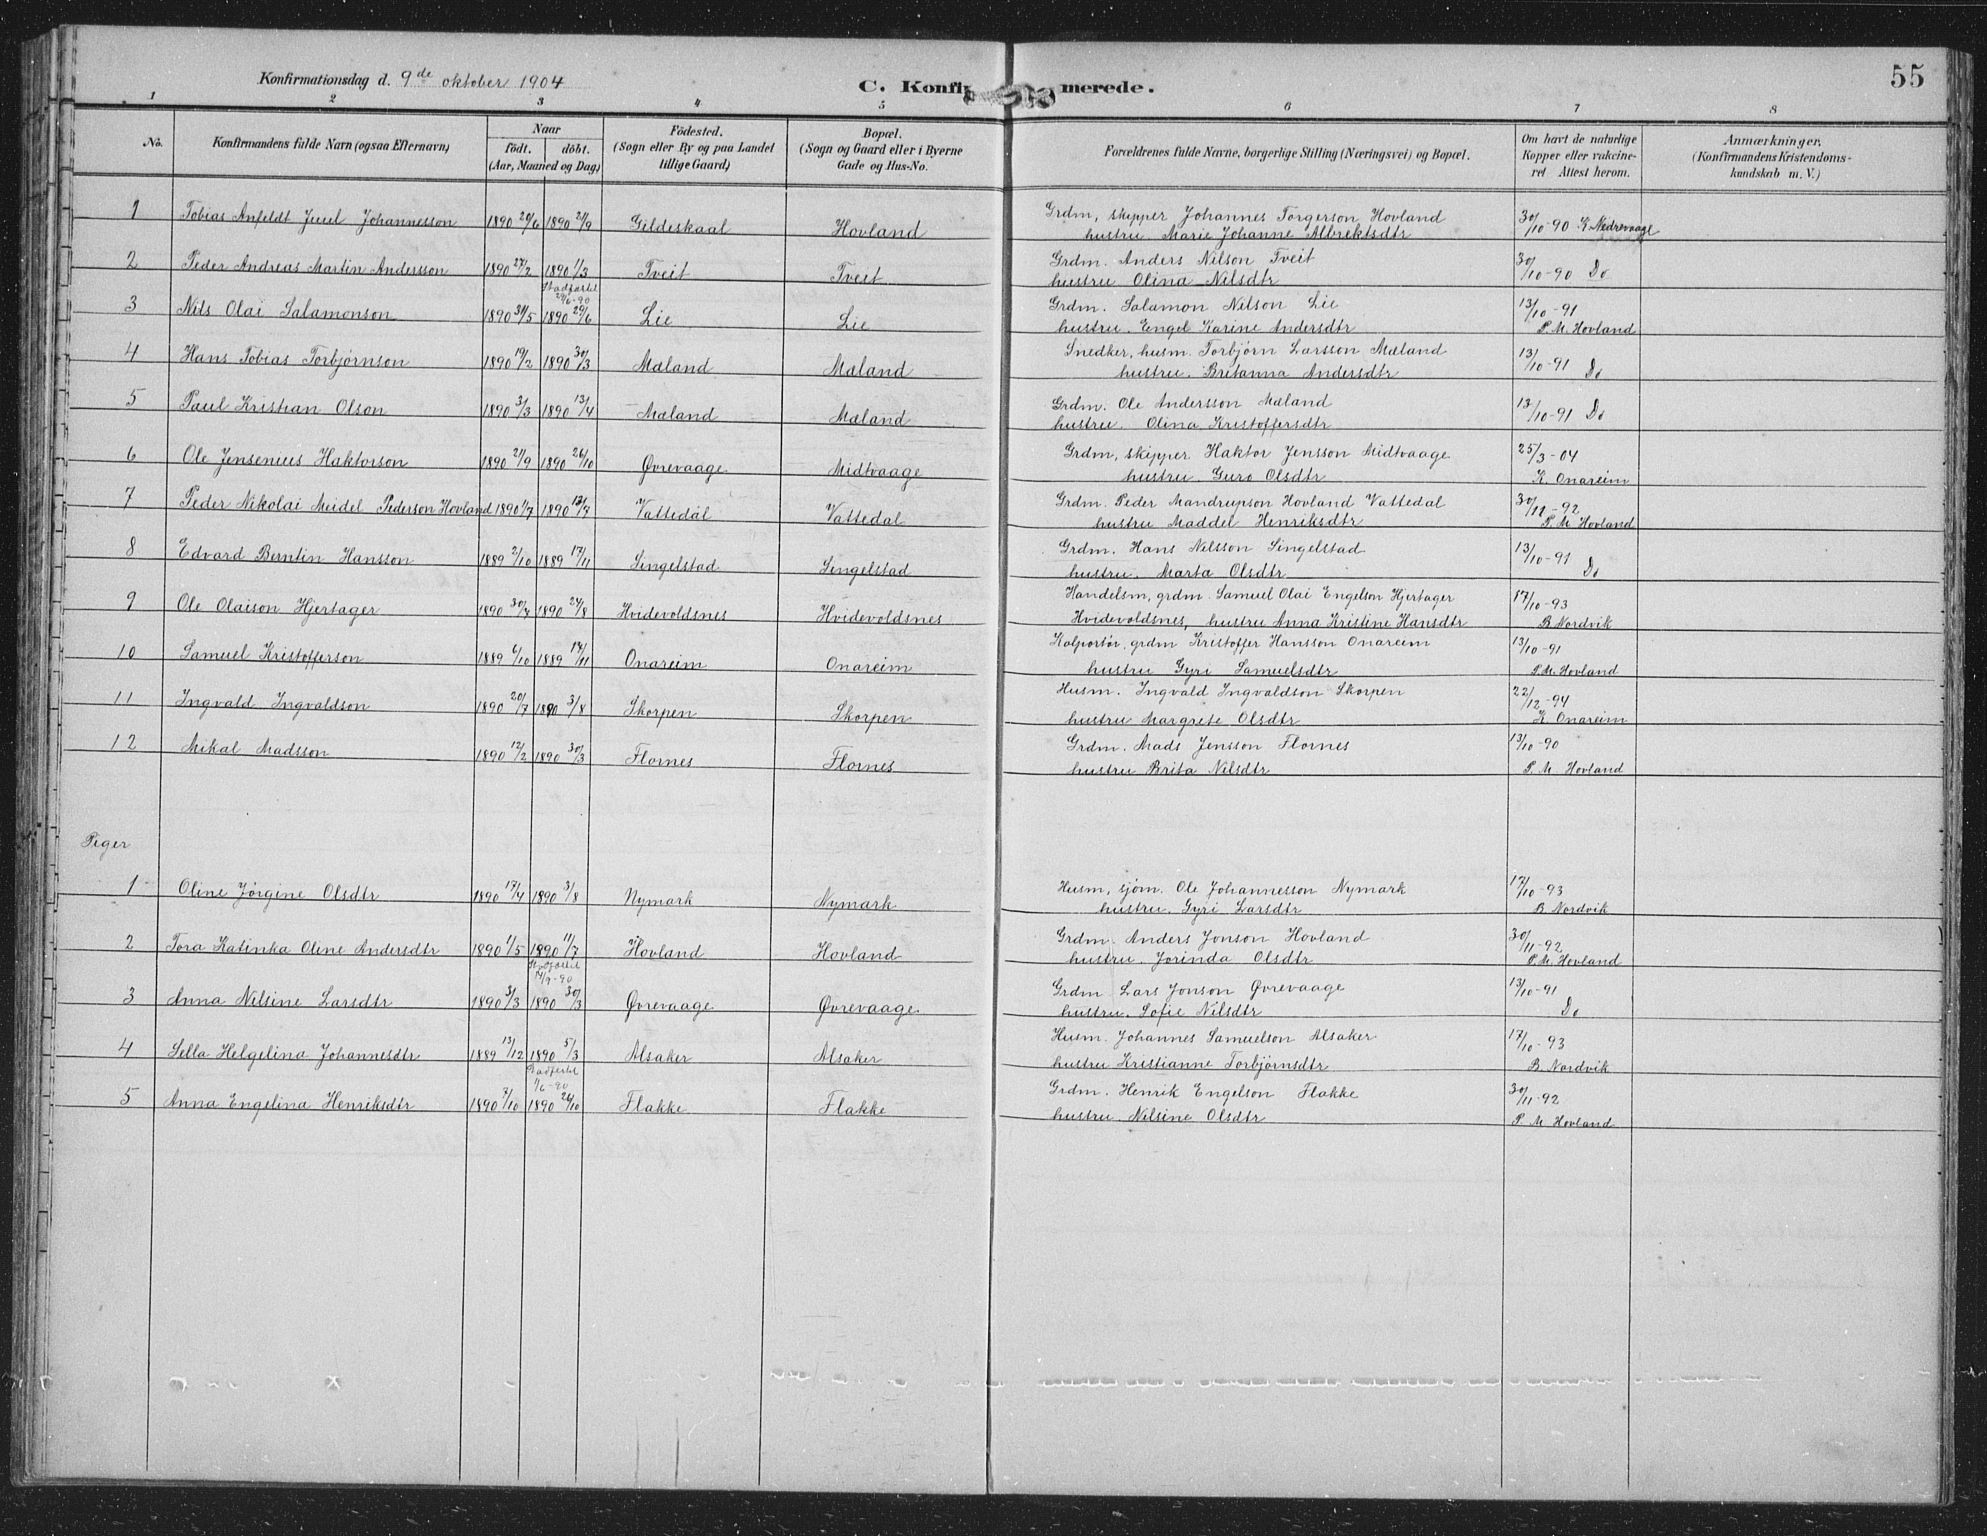 Konfirmationsdag d. 9de oktober 1904
C. Konfirmerede.
55
1 2 3 4 5 6 7 8
No.
Konfirmandens fulde Navn (ogsaa Efternavn)
Naar
födt. döbt.
(Aar, Maaned og Dag)
Födested.
(Sogn eller By og paa Landet
tillige Gaard)
Bopæl.
(Sogn og Gaard eller i Byerne
Gade og Hus-No.
Forældrenes fulde Navne, borgerlige Stilling (Næringsvei) og Bopæl.
Om havt de naturlige
Kopper eller vakcine-
ret Attest herom.
Anmærkninger.
(Konfirmandens Kristendoms-
kundskab m. V.)
1 Tobias Anfeldt Juul Johannesson 1890 1890 Gildeskaal Hovland Grdm, skipper Johannes Torgerson Hovland 30/10-90 K. Nedrevaage
hustru Marie Johanne Albrektsdtr
2 Peder Andreas Martin Andersson 1890 27/2 1890 1/3 Tveit Tveit Grdm. Anders Nilson Tveit 30/10-90 Do
hustru Olina Nilsdtr
3 Nils Olai Salamonson 1890 31/5 1890 29/6 Lie Lie Grdm. Salamon Nilson Lie 13/10-91
hustru. Engel Karine Andersdtr P. M. Hovland
4 Hans Tobias Torbjørnson 1890 19/2 1890 30/3 Mæland Mæland Snedker, husm. Torbjørn Larsson Mæland 13/10-91 Do
hustru. Britanna Andersdtr
5 Paul Kristian Olson 1890 3/3 1890 13/4 Mæland Mæland Grdm. Ole Andersson Mæland 13/10-91 Do
hustru. Olina Kristoffersdtr
6 Ole Jensenius Haktorson 1890 21/9 1890 26/10 Øvrevaage Midtvaage Grdm, skipper Haktor Jensson Midtvaage 25/3-04
hustru. Guro Olsdtr K. Onareim
7 Peder Nikolai Meidel Pederson Hovland 1890 1/7 1890 13/7 Vattedal Vattedal Grdm. Peder Mandrupson Hovland Vattedal 30/11-92
hustru Maddel Henriksdtr P. M. Hovland
8 Edvard Berntin Hansson 1889 2/10 1889 17/11 Singelstad Singelstad Grdm. Hans Nilsson Singelstad 13/10-91
hustru. Marta Olsdtr Do
9 Ole Olaison Hjertager 1890 30/7 1890 24/8 Hvidevoldsnes Hvidevoldsnes Handelsm, grdm. Samuel Olai Engelson Hjertager 17/10-93
Hvidevoldsnes, hustru Anna Kristine Hansdtr B. Nordvik
10 Samuel Kristofferson 1889 6/10 1889 17/11 Onareim Onareim Kolportør, grdm Kristoffer Hansson Onareim 13/10-91
hustru Gyri Samuelsdtr P.M. Hovland
11 Ingvald Ingvaldson 1890 20/7 1890 3/8 Skorpen Skorpen Husm. Ingvald Ingvaldson Skorpen 22/12-94
hustru Margrete Olsdtr K. Onareim
12 Mikal Madsson 1890 12/2 1890 30/3 Flornes Flornes Grdm. Mads Jensson Flornes 13/10-90
hustru Brita Nilsdtr P. M. Hovland
Piger
1 Oline Jørgine Olsdtr 1890 17/4 1890 3/8 Nymark Nymark Husm, sjøm. Ole Johannesson Nymark 17/10-93
hustru. Gyri Larsdtr B. Nordvik
2 Tora Katinka Oline Andersdtr 1890 1/5 1890 11/7 Hovland Hovland Grdm. Anders Jonson Hovland 30/11-92
hustru. Jorinda Olsdtr P. M. Hovland
3 Anna Nilsine Larsdtr 1890 3/3 1890 30/3 Øvrevaage Øvrevaage Grdm Lars Jonson Øvrevaage 13/10-91
hustru. Sofie Nilsdtr Do
4 Sella Helgelina Johannesdtr 1889 13/12 1890 5/3 Alsaker Alsaker Husm. Johannes Samuelson Alsaker 17/10-93
hustru Kristianne Torbjørnsdtr B. Nordvik
5 Anna Engelina Henriksdtr 1890 7/10 1890 26/10 Flakke Flakke Grdm. Henrik Engelson Flakke 30/11-92
hustru. Nilsine Olsdtr P. M Hovland